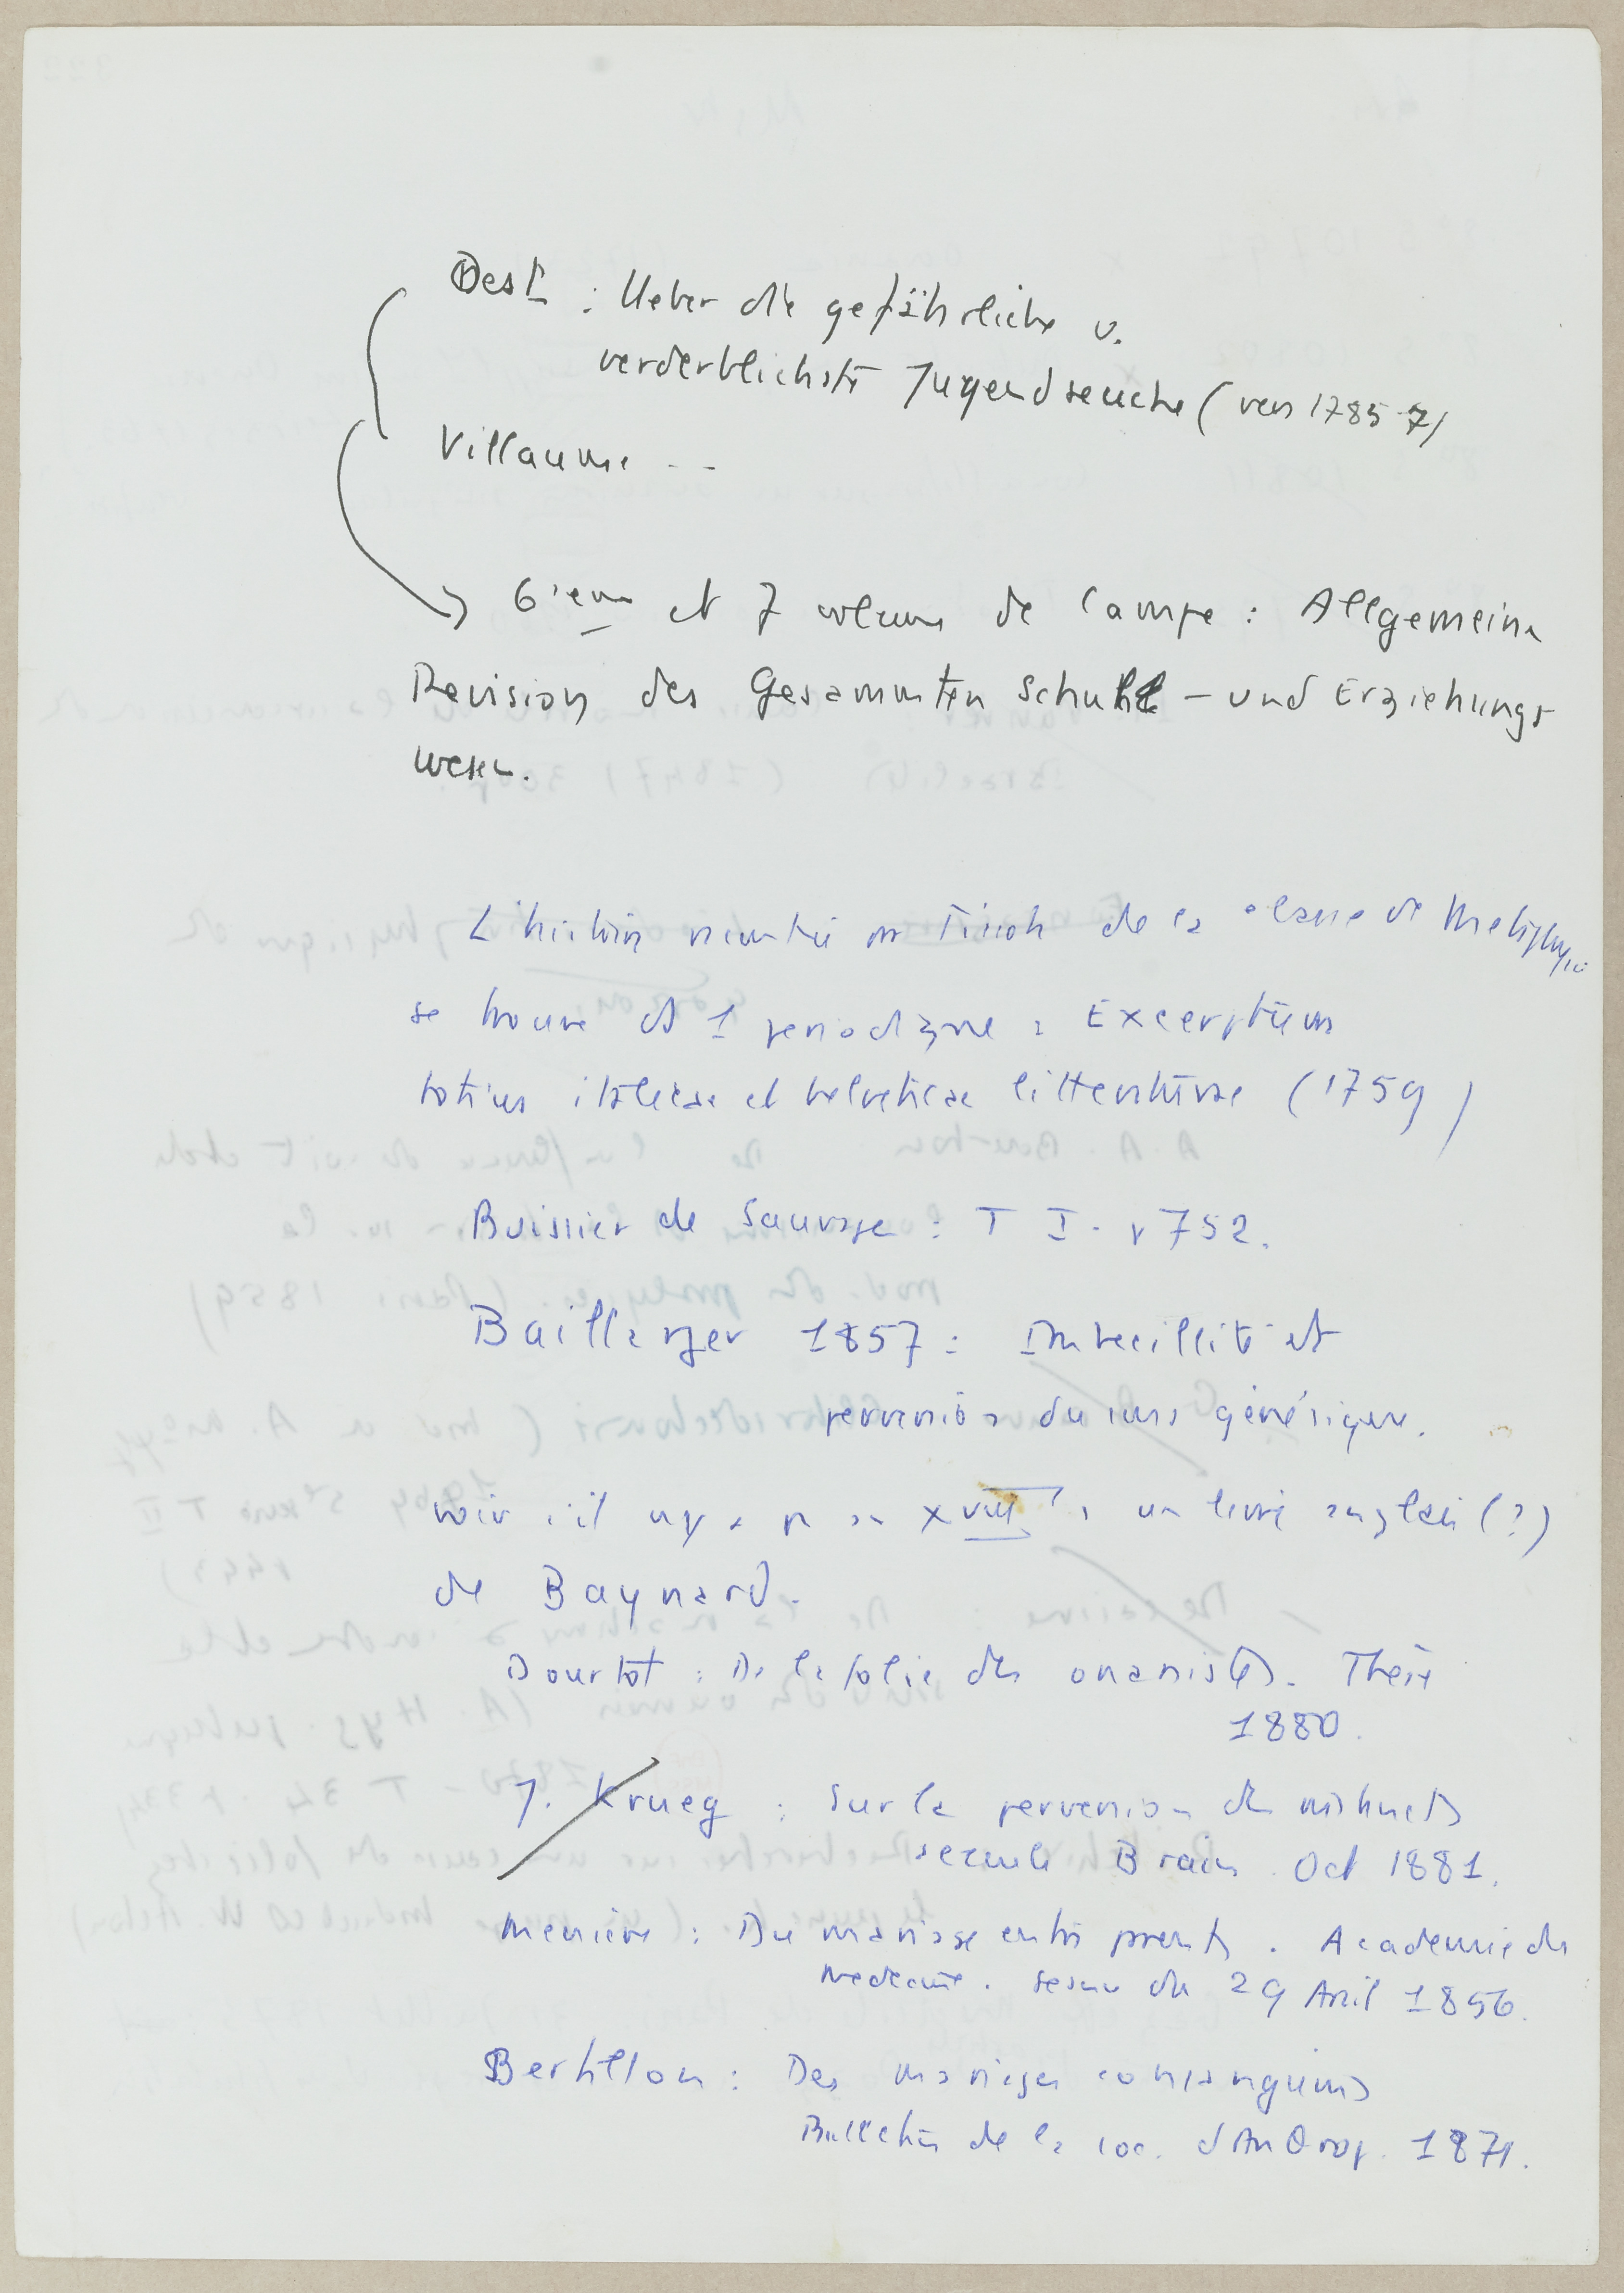 Oest : Ueber die gefährliche u.
verderblichste Jugendseuche (vers 1785-7)
Villaume --
6ieme et 7 volume de Campe : Allgemeine
Revision des Gesammten Schul - und Erziehungs
wesen.
L'histoire racontée par Tissot de la classe de
se trouve ds 1 periodique : Excerptum
totius italicae et helveticae litteraturae (1759)
Boissier de Sauvage : T I. p 752.
Baillarger 1857 : Imbecillité et
perversion du sens génésique.
voir s'il n'y a pas au XVIII e, un livre anglais (?)
de Baynard.
Bourtot : De la folie des onanistes. Thèse
1880.
J. Krueg : Sur la perversion des instincts
sexuels Brain. Oct 1881.
Menière : Du mariage entre parents. Academie de
Medecine. Seance du 29 Avril 1856.
Bertillon : Des mariages consanguins
Bulletin de la soc. d'Anthrop. 1871.